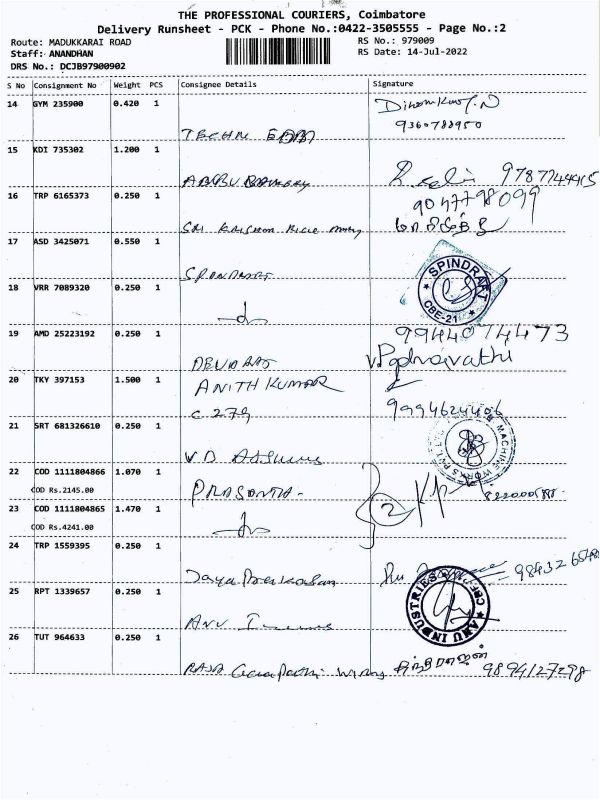 THE PROFESSIONAL COURIERS, Coimbatore
Delivery Runsheet - PCK - Phone No.:0422-3505555 - Page No.:2
Route: MADUKKARAI ROAD RS No.: 979009
Staff: ANANDHAN RS Date: 14-Jul-2022
DRS No.: DCJB97900902
S No Consignment No Weight PCS Consignee Details Signature
14 GYM 235900 0.420 1
9360788950
TECHN
15 KDI 735302 1.200 1
9787744415
16 TRP 6165373 0.250 1
9047798099
Sri Krishna Rice
17 ASD 3425071 0.550 1
SPINDRAFT
CBE-21
18 VRR 7089320 0.250 1
19 AMD 25223192 0.250 1
9944074473
DEVARAJ
20 TKY 397153 1.500 1 ANITH KUMAR
C 279
21 SRT 681326610 0.250 1
MACHINE WORKS PVT
V.D
22 COD 1111804866 1.070 1
COD Rs.2145.00
PRASANTH-
23 COD 1111804865 1.470 1
2
COD Rs.4241.00
24 TRP 1559395 0.250 1
Jaya Prakasam
25 RPT 1339657 0.250 1
ANU INDUSTRIES
ANU
26 TUT 964633 0.250 1
RAJA Ganapathi 9894127298